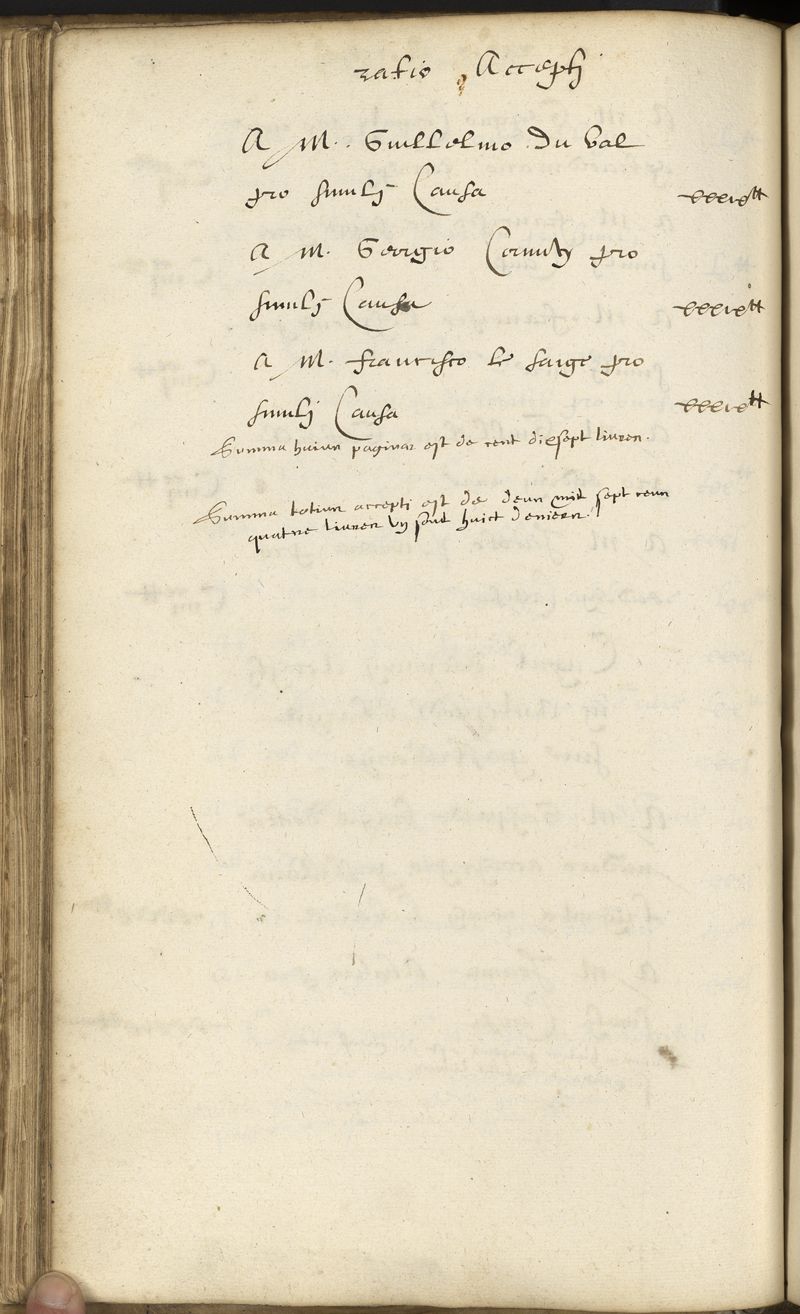 ratio Accepti
A M. Guillelmo Du Val
pro simili Causa xxxix tt
A M. Georgio Cornuty pro
simili Causa xxxix tt
A M. francisco le saige pro
simili Causa xxxix tt
Summa huius paginae est de cent diesept livres.
Summa totius accepti est de deux mil sept cens
quatre livres vij soud huict deniers.